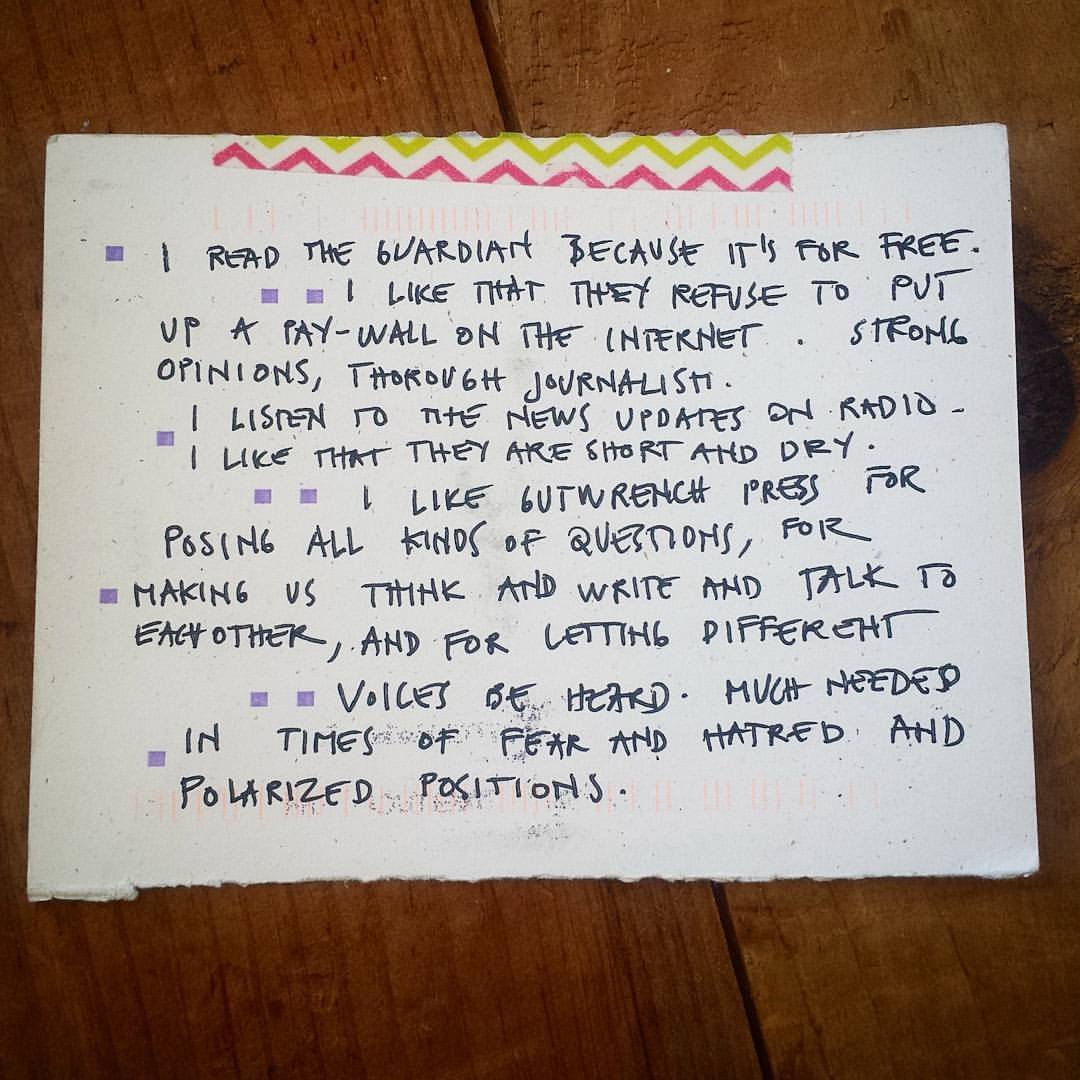 I READ THE GUARDIAN BECAUSE IT'S FOR FREE.
I LIKE THAT THEY REFUSE TO PUT
UP A PAY-WALL ON THE INTERNET. STRONG
OPINIONS, THOROUGH JOURNALISM.
I LISTEN TO THE NEWS UPDATES ON RADIO-
I LIKE THAT THEY ARE SHORT AND DRY.
I LIKE GUTWRENCH PRESS FOR
POSING ALL KINDS OF QUESTIONS, FOR
MAKING US THINK AND WRITE AND TALK TO
EACH OTHER, AND FOR LETTING DIFFERENT
VOICES BE HEARD. MUCH NEEDED
IN TIMES OF FEAR AND HATRED AND
POLARIZED POSITIONS.